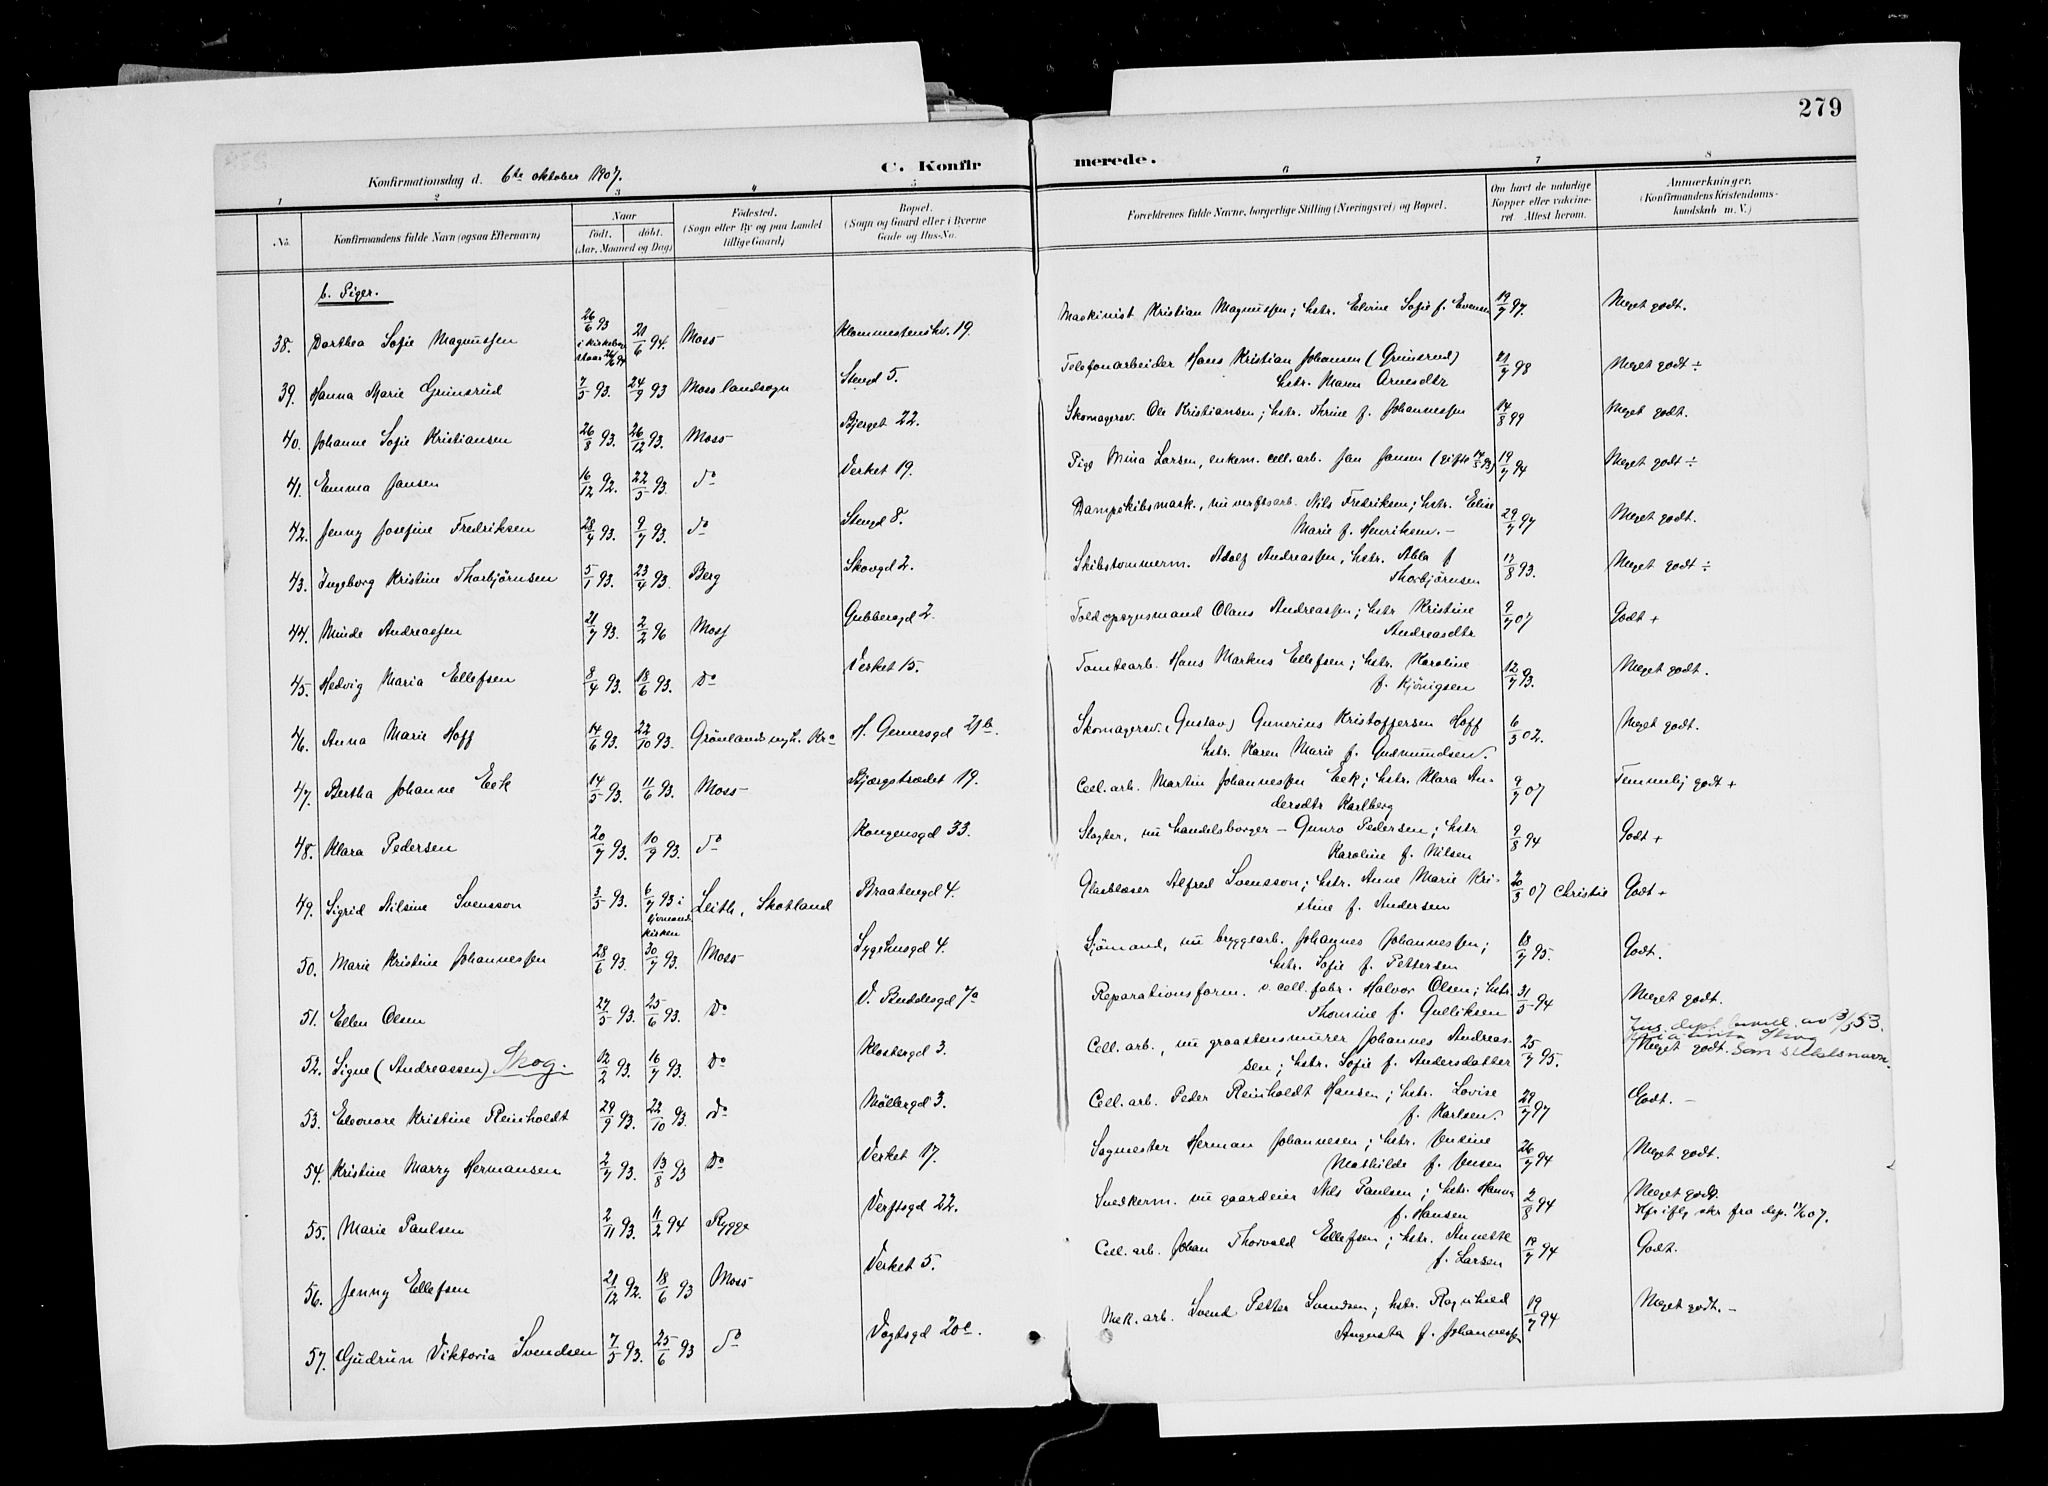 279
C. Konfirmerede.
Konfirmationsdag d. 6te oktober 1907.
1 2 3 4 5 6 7 8
No.
Konfirmandens fulde Navn (ogsaa Efternavn)
Naar
født. døbt.
(Aar, Maaned og Dag)
Fødested.
(Sogn eller By og paa Landet
tillige Gaard)
Bopæl.
(Sogn og Gaard eller i Byerne
Gade og Hus-No.
Forældrenes fulde Navne, borgerlige Stilling (Næringsvei) og Bopæl.
Om havt de naturlige
Kopper eller vakcine-
ret Attest herom.
Anmærkninger.
(Konfirmandens Kristendoms-
kundskab m. V.)
b. Piger.
38. Dorthea Sofie Magnussen 26/6 93 20/6 94. Moss Klommestenskv. 19. Maskinist Kristian Magnussen; hstr. Elvine Sofie f. Evensen 19/7 97. Meget godt.
39. Hanna Marie Grimsrud 7/5 93. 24/9 93 Moss landsogn Stengd 5. Telefonarbeider Hans Kristian Johansen (Grimsrud)
hstr. Maren Arnesdtr 21/7 98 Meget godt ÷
40. Johanne Sofie Kristiansen 26/8 93. 26/12 93. Moss Bjerget 22. Skomagersv. Ole Kristiansen; hstr. Thrine f. Johannessen 14/8 99 Meget godt.
41. Emma Jansen 16/12 92. 22/5 93. do Verket 19. Pige Mina Larsen, enkem. cell. arb. Jan Jansen (gifte 14/5 93) 19/7 94 Meget godt ÷
42. Jenny Josefine Fredriksen 28/4 93. 9/7 93. do Stengd 8. Dampskibsmask., nu verftsarb. Nils Fredriksen; hstr. Elise
Marie f. Henriksen. - 29/7 97 Meget godt.
43. Ingeborg Kristine Thorbjörnsen 5/1 93. 23/4 93. Berg Skovgd 2. Skibstømmerm. Adolf Andreassen, hstr. Abla f
Thorbjörnsen 17/8 93. Meget godt ÷
44. Minde Andreassen 21/7 93. 2/2 96 Moss Gubbergd 2. Toldopsynsmand Olaus Andreassen; hstr Kristine
Andreasdtr 9/7 07 Godt +
45. Hedvig Maria Ellefsen 8/4 93. 18/6 93. do Verket 15. Tomtearb. Hans Markus Ellefsen; hstr. Karoline
f. Kjönigsen 12/7 93. Meget godt.
46. Anna Marie Hoff 14/6 93. 22/10 93. Grönlands mgh. Kra H. Gernersgd 21b. Skomagersv. (Gustav) Gunerius Kristoffersen Hoff
hstr. Karen Marie f. Gudmundsen. 6/5 02. Meget godt.
47. Bertha Johanne Eek 14/5 93. 11/6 93. Moss Bjærgstrædet 19. Cell. arb. Martin Johannessen Eek; hstr. Klara An-
dersdtr Karlberg 9/7 07 Temmelig godt +
48. Klara Pedersen 20/7 93. 10/9 93. do Kongensgd 33. Slagter, nu handelsborger - Gunro Pedersen; hstr
Karoline f. Nilsen 9/8 94 Godt +
49. Sigrid Nilsine Svensson 3/5 93. 6/7 93 i
Sjömands
kirken Leith, Skotland Braatengd 4. Glasblæser Alfred Svensson; hstr. Anne Marie Kri-
stine f. Andersen 20/3 07 Christie Godt +
50. Marie Kristine Johannessen 28/6 93. 30/7 93. Moss Sygehusgd 4. Sjömand, nu bryggearb. Johannes Johannessen;
hstr. Sofie f. Pettersen 18/7 95. Godt.
51. Ellen Olsen 27/5 93. 25/6 93. do V. Buddesgd 7a Reparationsform. v. cell. fabr. Halvor Olsen; hstr
Thomine f. Gulliksen 31/5 94 Meget godt.
52. Signe (Andreassen) Skog. 12/2 93. 16/7 93. do Klostergd 3. Cell. arb., nu graastensmurer Johannes Andreas-
sen; hstr. Sofie f. Andersdatter 25/7 95. Meget godt. som slektsnavn.
53. Eleonore Kristine Reinholdt 29/9 93. 22/10 93. do Möllergd 3. Cell. arb. Peder Reinholdt Hansen; hstr. Lovise
f. Karlsen. 29/7 97 Godt. -
54. Kristine Marry Hermansen 2/7 93. 13/8 93 do Verket 17. Sagmester Herman Johannesen; hstr. Jensine
Mathilde f. Jensen 26/7 94 Meget godt.
55. Marie Paulsen 2/11 93. 11/2 94 Rygge Verftsgd 22. Snedkerm. nu gaardeier Nils Paulsen; hstr. Hanna
f. Hansen 2/8 94 Meget godt.
skr fra dep. 07.
56. Jenny Ellefsen 21/12 92. 18/6 93 Moss Verket 5. Cell. arb. Johan Thorvald Ellefsen; hstr. Annette
f. Larsen 19/7 94 Godt.
57. Gudrun Viktoria Svendsen 7/5 93. 25/6 93 do Vogtsgd 20c. Mek. arb. Svend Petter Svendsen; hstr. Ragnhild
Augusta f. Johannessen 19/7 94 Meget godt. -